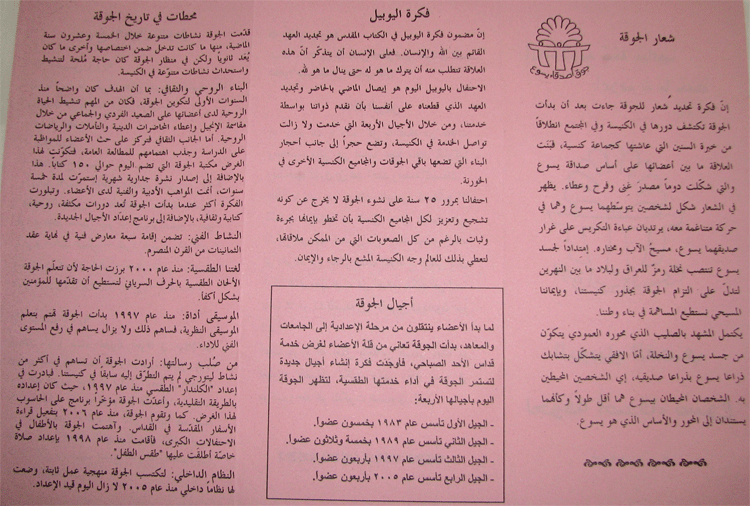 شعار الجوقة
جوق أصدقاء يسوع
إنّ فكرة تحديد شعار للجوقة جاءت بعد أن بدأت
الجوقة تكتشف دورها في الكنيسة وفي المجتمع انطلاقاً
من خبرة السنين التي عاشتها كجماعة كنسية، فبُنت
العلاقة ما بين أعضائها على أساس صداقة يسوع
والتي شكّلت دوماً مصدرَ غنى وفرح وعطاء. يظهر
في الشعار شكل لشخصين يتوسّطهما يسوع وهما في
حركة متناغمة معه، يرتديان عباءة التكريس على غرار
صديقهما يسوع، مسيحُ الآب ومختاره. إمتداداً لجسد
يسوع تنتصب نخلة رمزٌ للعراق ولبلاد ما بين النهرين
لتدلّ على التزام الجوقة بجذور كنيستنا، وبإيماننا
المسيحي نستطيع المساهمة في بناء وطننا.
يكتمل المشهد بالصليب الذي محوره العمودي يتكوّن
من جسد يسوع والنخلة، أمّا الافقي يتشكّل بتشابك
ذراعا يسوع بذراعا صديقيه، إي الشخصين المحيطين
به. الشخصان المحيطان بيسوع هما أقل طولاً وكأنهما
يستندان إلى المحور والأساس الذي هو يسوع.
فكرة اليوبيل
إنّ مضمون فكرة اليوبيل في الكتاب المقدس هو تجديد العهد
القائم بين الله والإنسان. فعلى الإنسان أن يتذكّر أنّ هذه
العلاقة تتطلب منه أن يترك ما هو له حتى ينال ما هو لله.
الاحتفال باليوبيل اليوم هو إيصال الماضي بالحاضر وتجديد
العهد الذي قطعناه على أنفسنا بأن نقدم ذواتنا بواسطة
خدمتنا، ومن خلال الأجيال الأربعة التي خدمت ولا زالت
تواصل الخدمة في الكنيسة، وتضع حجراً إلى جانب أحجار
البناء التي تضعها باقي الجوقات والمجاميع الكنسية الأخرى في
الخورنة.
احتفالنا بمرور ٢٥ سنة على نشوء الجوقة لا يخرج عن كونه
تشجيع وتعزيز لكل المجاميع الكنسية بأن تخطو بإيمانها بجرءة
وثبات بالرغم من كل الصعوبات التي من الممكن ملاقاتها،
لتعطي بذلك للعالم وجه الكنيسة المشع بالرجاء والإيمان.
أجيال الجوقة
لما بدأ الأعضاء ينتقلون من مرحلة الإعدادية إلى الجامعات
والمعاهد، بدأت الجوقة تعاني من قلة الأعضاء لغرض خدمة
قداس الأحد الصباحي، فأوجدَت فكرة إنشاء أجيال جديدة
لتستمر الجوقة في أداء خدمتها الطقسية، لتظهر الجوقة
اليوم بأجيالها الأربعة:
ـ الجيل الأول تأسس عام ١٩٨٣ بخمسون عضواً.
ـ الجيل الثاني تأسس عام ١٩٨٩ بخمسة وثلاثون عضواً.
ـ الجيل الثالث تأسس عام ١٩٩٧ بأربعون عضواً.
ـ الجيل الرابع تأسس عام ٢٠٠٥ بأربعون عضواً.
محطات في تاريخ الجوقة
قدّمت الجوقة نشاطات متنوعة خلال الخمسة والعشرون سنة
الماضية، منها ما كانت تدخل ضمن اختصاصها وأخرى ما كان
يُعد ثانوياً ولكن في منظار الجوقة كان حاجة مُلحة لتنشيط
واستحداث نشاطات متنوعة في الكنيسة.
البناء الروحي والثقافي: بما أن الهدف كان واضحاً منذ
السنوات الأولى لتكوين الجوقة، فكان من المهم تنشيط الحياة
الروحية لدى أعضائها على الصعيد الفردي والجماعي من خلال
مقاسمة الإنجيل وإعطاء المحاضرات الدينية والتأملات والرياضات
الروحية. أما الجانب الثقافي فتركز على حث الأعضاء للمواظبة
على الدراسة وجذب اهتمامهم للمطالعة العامة. فتكوّنت لهذا
الغرض مكتبة الجوقة التي تضم اليوم حوالي ١٥٠ كتاباً. هذا
بالإضافة إلى إصدار نشرة جدارية شهرية إستمرّت لمدة خمسة
سنوات، أنمت المواهب الأدبية والفنية لدى الأعضاء. وتبلورت
الفكرة أكثر عندما بدأت الجوقة تُعد دورات مكثفة، روحية،
كتابية وثقافية، بالإضافة إلى برنامج إعدّاد الأجيال الجديدة.
النشاط الفني: تضمن إقامة سبعة معارض فنية في نهاية عقد
الثمانينات من القرن المنصرم.
لغتنا الطقسية: منذ عام ٢٠٠٠ برزت الحاجة لأن تتعلّم الجوقة
الألحان الطقسية بالحرف السرياني لتستطيع أن تقدّمها للمؤمنين
بشكل أكفأ.
الموسيقى أداة: منذ عام ١٩٩٧ بدأت الجوقة تهتم بتعلم
الموسيقى النظرية، فساهم ذلك ولا يزال يساهم في رفع المستوى
الفني للاداء.
من صُلب رسالتها: أرادت الجوقة أن تساهم في أكثر من
نشاط ليتورجي لم يتم التطرّق إليه سابقاً في كنيستنا. فبادرت في
إعداد "الكلندار" الطقسي منذ عام ١٩٩٧، حيث كان إعداده
بالطريقة التقليدية، وأعدّت الجوقة مؤخراً برنامج على الحاسوب
لهذا الغرض. كما وتقوم الجوقة، منذ عام ٢٠٠٦ بتفعيل قراءة
الأسفار المقدّسة في القداس. وآهتمت الجوقة بالأطفال في
الاحتفالات الكبرى، فأقامت منذ عام ١٩٩٨ بإعداد صلاة
خاصّة أطلقت عليها "طقس الطفل".
النظام الداخلي: لتكتسب الجوقة منهجية عمل ثابتة، وضعت
لها نظاماً داخلي منذ عام ٢٠٠٥ لا زال اليوم قيد الإعداد.